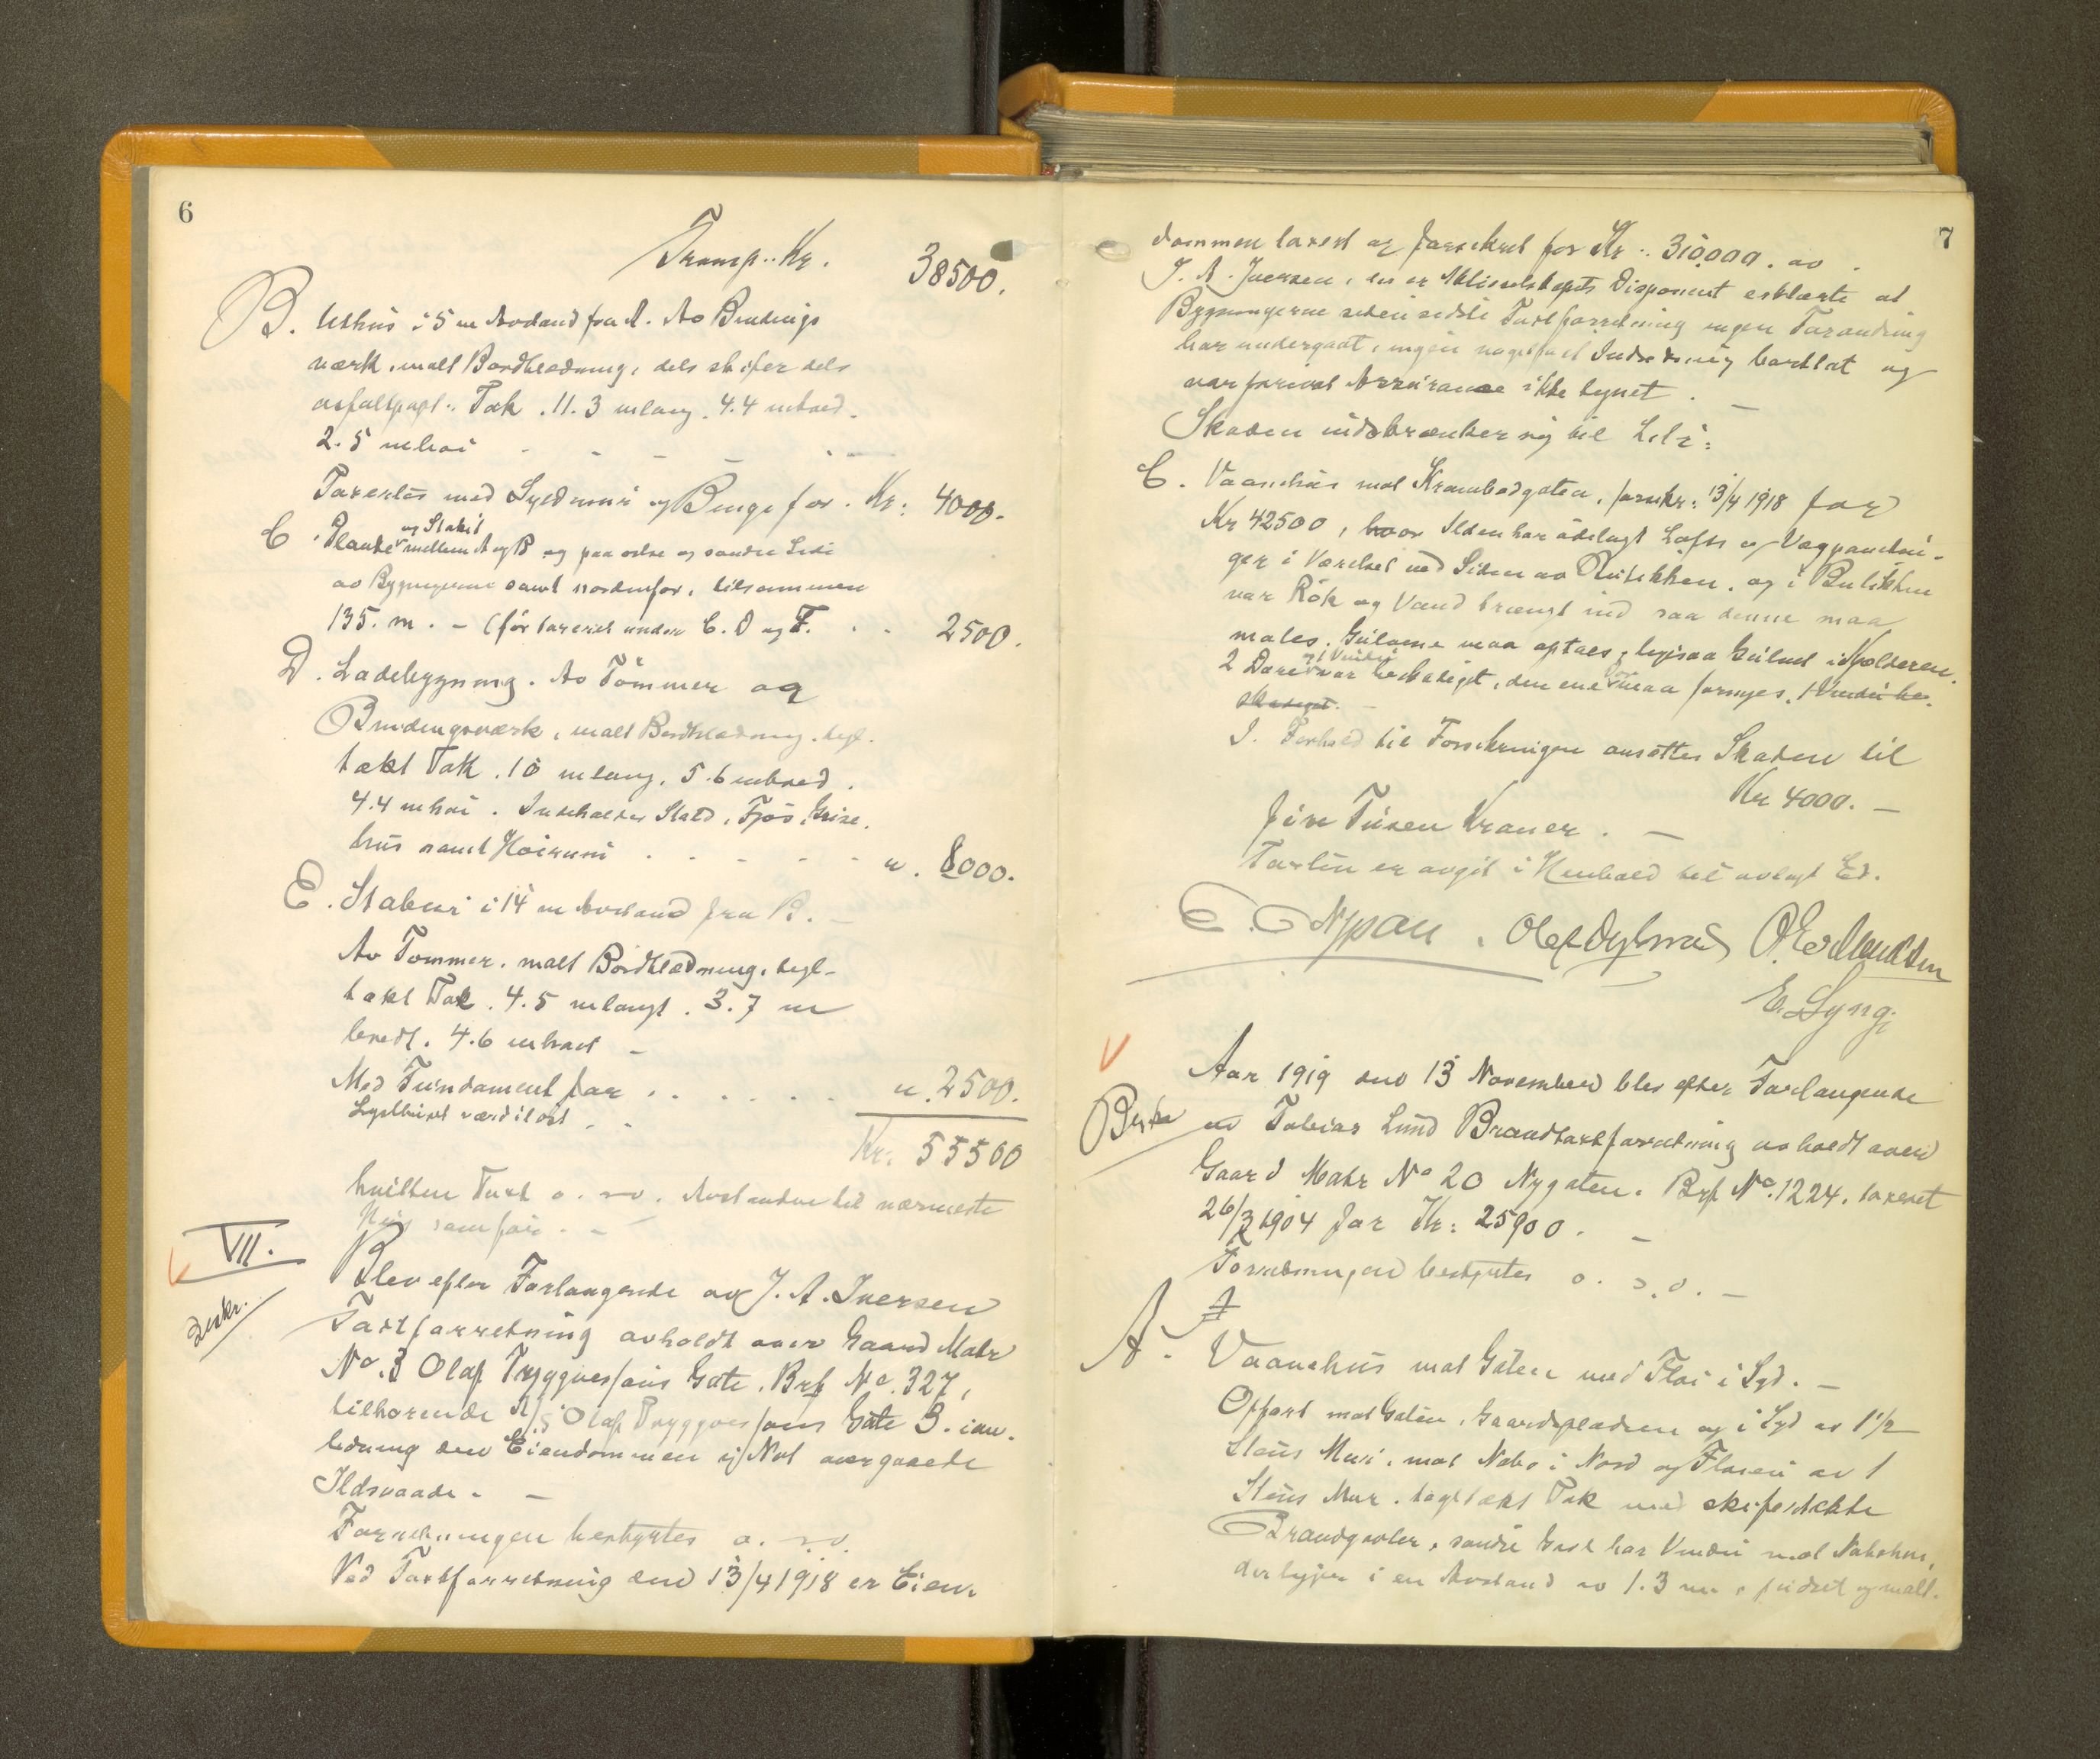 6
Transp. Kr. 38500.
B. Uthus i 5 m Avstand fra A. Av Bindings
værk, malt Bordklædning, dels skifer dels
asfaltpapt. Tak. 11.3 m lang. 4.4 m bred.
2.5 m høi
Taxertes med Syldmur og Binge for. Kr: 4000.
C. Planke og Stakit mellem A og B og paa østre og søndre Side
av Bygningerne samt nordenfor, tilsammen
135. m. - (før taxeret under C. D og F. 2500.
D. Ladebygning. Av Tömmer og
Bindingsværk, malt Bordklædning, tegl-
tækt Tak. 10 m lang. 5.6 m bred.
4.4 m høi. Indeholder Stald, Fjös, Grise-
hus samt Höirum " 8000.
E. Stabur i 14 m Avstand fra B. -
Av Tømmer. malt Bordklædning, tegl-
tækt Tak. 4.5 m langt. 3.7 m
bredt. 4.6 m høit -
Med Fundament for " 2500.
Lysthuset værdiløst
Kr: 55500
hvilken Taxt o. s. v. Avstanden til nærmeste
Hus som før. -
VII.
Blev efter Forlangende av J. A. Iversen
beskr.
Taxtforretning avholdt over Gaard Matr
No. 3 Olaf Tryggvessøns Gate. Brf No. 327,
tilhørende A/S Olaf Tryggvessøns Gate 3. i an-
ledning den Eiendommen i Nat overgaaede
Ildsvaade. -
Forretningen bestyrtes o. s. v.
Ved Taxtforretning den 13/4 1918 er Eien-
7
dommen taxert og forsikret for Kr: 310.000. av
J. A. Iversen, der er Aktieselskapets Disponent erklærte at
Bygningerne siden sidste Taxtforretning ingen Forandring
har undergaat, ingen nagelfast Indredning borttat og
var forövet Assurance ikke tegnet. -
Skaden indskrænker sig til Litr:
C. Vaanehus mot Krambodgaten, forsikr. 13/4 1918 for
Kr 42500, hvor Ilden har ödelagt Lofts og Vægpanelin-
ger i Værelset ved Siden av Butikken. og i Butikken
var Røk og Vand trængt ind saa denne maa
males. Gulvene maa optaes, ligesaa Gulvet i Kjelderen.
2 Döre og 1 Vindu var beskadiget, den ene Dör maa fornyes, 1 Vindu be-
skadiget. -
I Forhold til Forsikringen ansættes Skaden til
Kr 4000. -
fire Tusen Kroner. -
Taxten er avgit i Henhold til avlagt Ed.
E. Nypan. Olaf Dybvad O. Edv. Knudsen
E. Lyng.
Aar 1919 den 13 November blev efter Forlangende
Beskr
av Tobias Lund Brandtaxtforretning avholdt over
Gaard Matr No 20 Nygaten. Brf No. 1224. taxeret
26/3 1904 for Kr: 25900. -
Forretningen bestyrtes o. s. v. -
A. Vaanehus mot Gaten med Fløi i Syd. -
Opført mot Gaten, Gaardspladsen og i Syd av 1½
Stens Mur, mot Nabo i Nord og Fløien av 1
Stens Mur. tegltækt Tak med skifertækte
Brandgavler, søndre Gavl har Vinduer mot Nabohus,
der ligger i en Avstand av 1.3 m, pudset og malt.